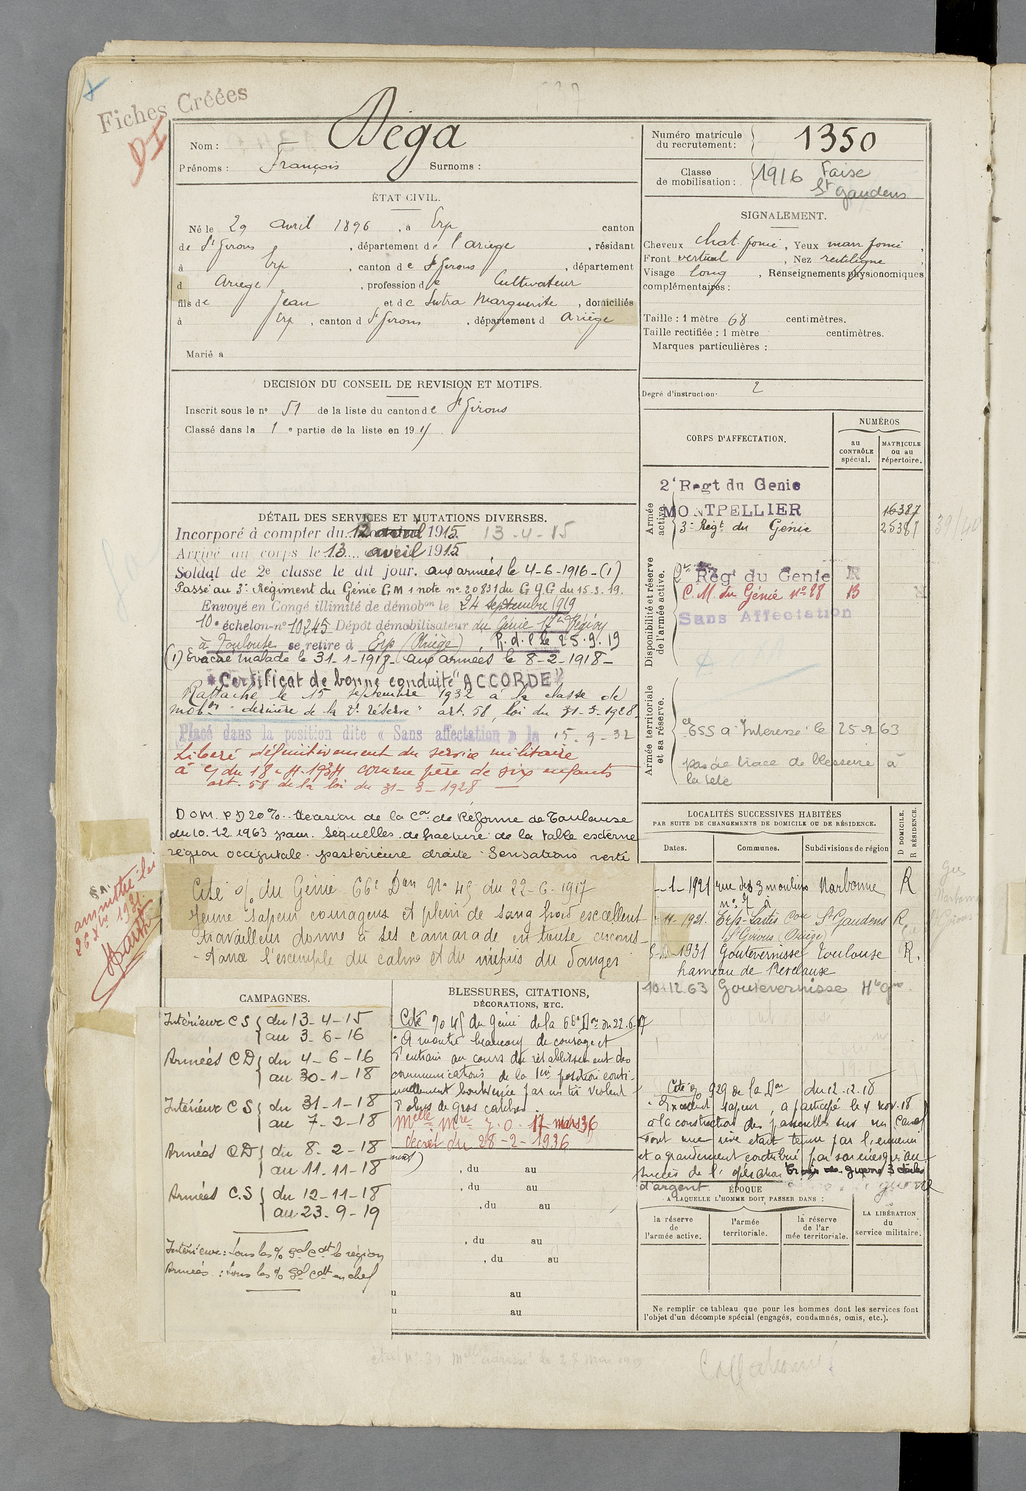 Fiches Créées
DI
Nom : Dèga
Prénoms : François Surnoms :
Numéro matricule du recrutement : 1350
Classe de mobilisation : 1916 Faise St Gaudens
ÉTAT CIVIL.
Né le 29 avril 1896, à Erp canton
de St Girons, département de l'ariège, résidant
à Erp, canton de St Girons, département
d Ariège, profession de Cultivateur
fils de Jean et de Sutra Marguerite, domiciliés
à Erp, canton d St Girons, département d Ariège
Marié à
SIGNALEMENT.
Cheveux chat. foncé, Yeux marr foncé,
Front vertical, Nez rectiligne,
Visage long, Renseignements physionomiques
complémentaires :
Taille : 1 mètre 68 centimètres.
Taille rectifiée : 1 mètre centimètres.
Marques particulières :
DECISION DU CONSEIL DE REVISION ET MOTIFS.
Inscrit sous le n° 51 de la liste du canton de St Girons
Classé dans la 1e partie de la liste en 191
Degré d'instruction : 2
CORPS D'AFFECTATION.
NUMÉROS
au CONTRÔLE spécial.
MATRICULE ou au répertoire.
Armée active.
2e Regt du Genie
MONTPELLIER 16387
3e Regt du Génie 25381
Disponibilité et réserve de l'armée active.
Regt du Genie
C.M. du Génie n° 88 B
Sans Affectation
Armée territoriale et sa réserve.
655 a Interessé le 25 2 63
pas de trace de blessure à
la tete
DÉTAIL DES SERVICES ET MUTATIONS DIVERSES.
Incorporé à compter du 12 avril 1915. 13-4-15
Arrivé au corps le 13 avril 1915
Soldat de 2e classe le dit jour. aux armées le 4-6-1916-(1)
Passé au 3e Régiment du Génie GM 1 note n° 20831 du G Q G du 15.3.19.
Envoyé en Congé illimité de démobon le 24 septembre 1919
10e échelon-n° 10245 Dépôt démobilisateur du Génie 17e Région
à Toulouse se retire à Erp (Ariège), R.d.l le 25.9.19
(1) Evacué malade le 31-1-1918- aux armées le 8-2-1918-
"Certificat de bonne conduite" ACCORDE"
Rattaché le 15 septembre 1932 à la classe de
mobon "dernière de la 2e réserve" art. 58, loi du 31-3-1928
Placé dans la position dite « Sans affectation » le 15-9-32
Libéré définitivement du service militaire
à du 18-11-1934 comme père de six enfants
art. 58 de la loi du 31-3-1928 —
D O M. P D 20% Décision de la Con de Réforme de Toulouse
du 10.12.1963 pour. Sequelles de fracture de la table externe
région occipitale posterieure droite. Sensations verti
Cité o/ du Génie 66e Don N° 45 du 22-6-1917
Jeune sapeur courageux et plein de sang froid excellent
travailleur donne à ses camarade en toute circons-
-tance l'exemple du calme et du mépris du danger
LOCALITÉS SUCCESSIVES HABITÉES
PAR SUITE DE CHANGEMENTS DE DOMICILE OU DE RÉSIDENCE.
Dates. Communes. Subdivisions de région D DOMICILE. R RÉSIDENCE.
-1-1921 rue des 3 moulins n° 7 à Narbonne R
1921 Erp St Gaudens R
St Girons (Ariège)
1931 Goutevernisse Toulouse R.
hameau de
10-12.63 Goutevernisse Hte Gne
CAMPAGNES.
Intérieure C S du 13-4-15
au 3-6-16
Armées C D du 4-6-16
au 30-1-18
Intérieure C S du 31-1-18
au 7-2-18
Armées C D du 8-2-18
au 11-11-18
Armées C.S du 12-11-18
au 23-9-19
Intérieure : Sous les % Gal Cdt la région
Armées : Sous les % Gal Cdt en chef
BLESSURES, CITATIONS,
DÉCORATIONS, ETC.
Cité % 45 du génie de la 66e Don du 22-6-17
"A montré beaucoup de courage et
d'entrain au cours du rétablissement des
communications de la 1ère position conti-
nuellement bouleversée par un tir violent
d'obus de gros calibre.
Melle Mre J.O. 17 mars 36
décret du 28-2-1936
, du au
, du au
, du au
, du au
, du au
u au
u au
Cité % 929 de la Don du 12.12.18
"Excellent sapeur, a participé le 4 nov. 18
à la construction des passerelles sur un Canal
dont une rive était tenue par l'ennemi
et a grandement contribué par son énergie au
succès de l'opération Croix de guerre 2 étoiles
d'argent
ÉPOQUE
A LAQUELLE L'HOMME DOIT PASSER DANS :
la réserve de l'armée active.
l'armée territoriale.
la réserve de l'armée territoriale.
LA LIBÉRATION du service militaire.
Ne remplir ce tableau que pour les hommes dont les services font
l'objet d'un décompte spécial (engagés, condamnés, omis, etc.).